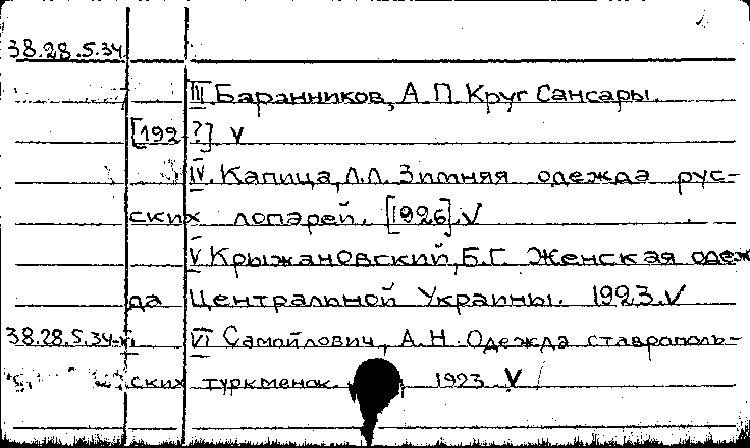 38.28.5.34
III Баранников, А.П. Круг Сансары.
[192-?] V
IV. Капица, Л.Л. Зимняя одежда рус-
ских лопарей. [1926]. V
V Крыжановский, Б.Г. Женская одеж
да Центральной Украины. 1923. V
38.28.5.34 VI Самойлович, А.Н. Одежда ставрополь-
ских туркменок. 1923 V